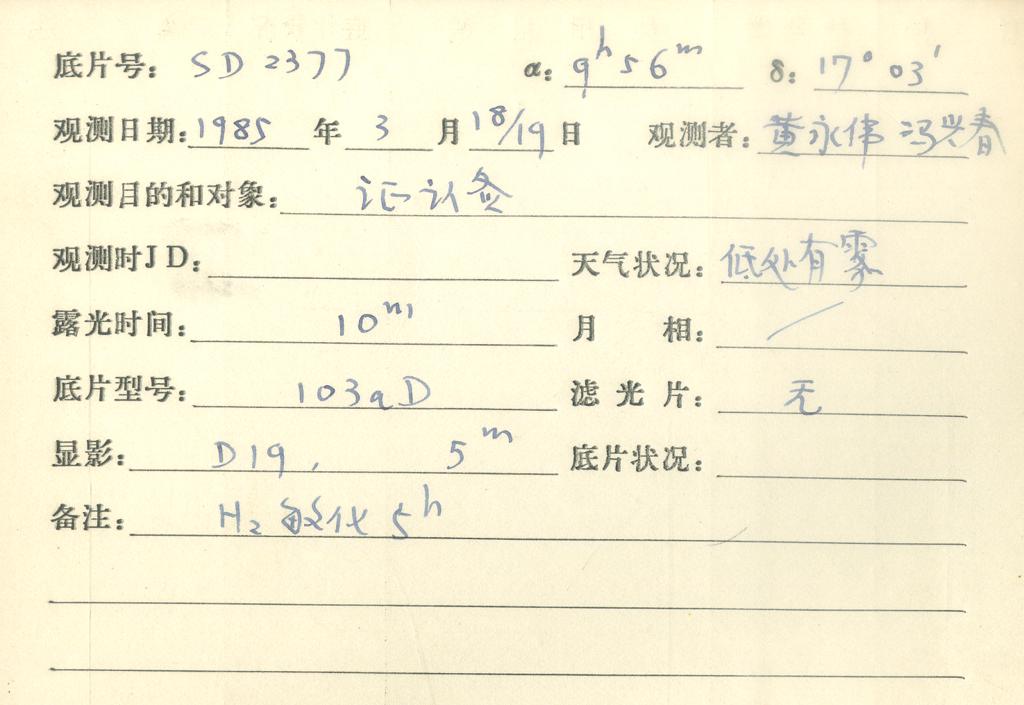 底片号: SD 2377 α: 9h 56m δ: 17° 03′
观测日期: 1985 年 3 月 18/19 日 观测者: 黄永伟 冯兴春
观测目的和对象: 证认
观测时JD: 天气状况: 低处有雾
露光时间: 10m 月 相: /
底片型号: 103aD 滤光片: 无
显影: D19, 5m 底片状况:
备注: H₂ 敏化 5h